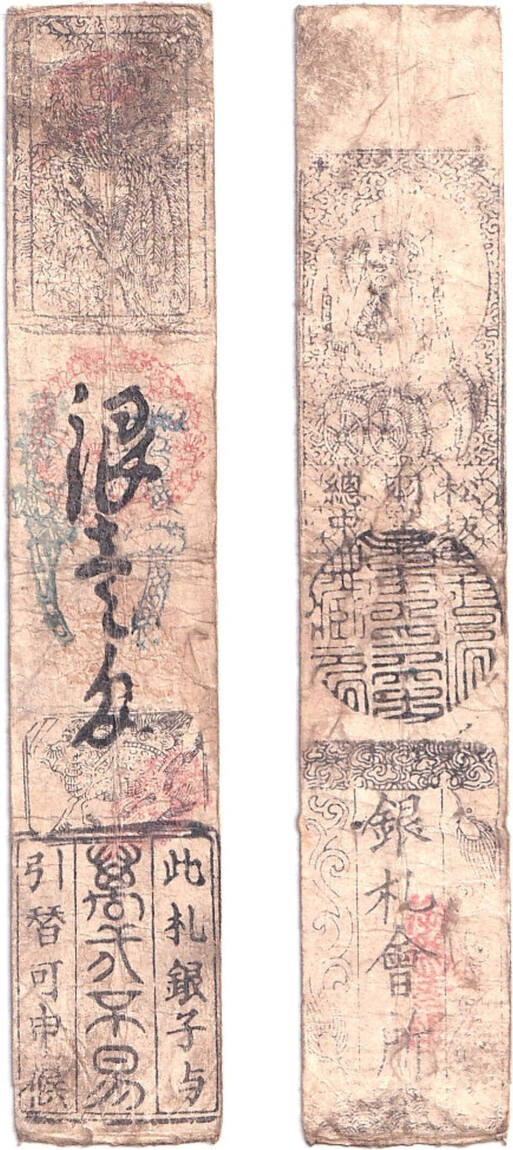 銀壹匁
此札銀子与
萬代不易
引替可申候
松坂
總中
銀札會所